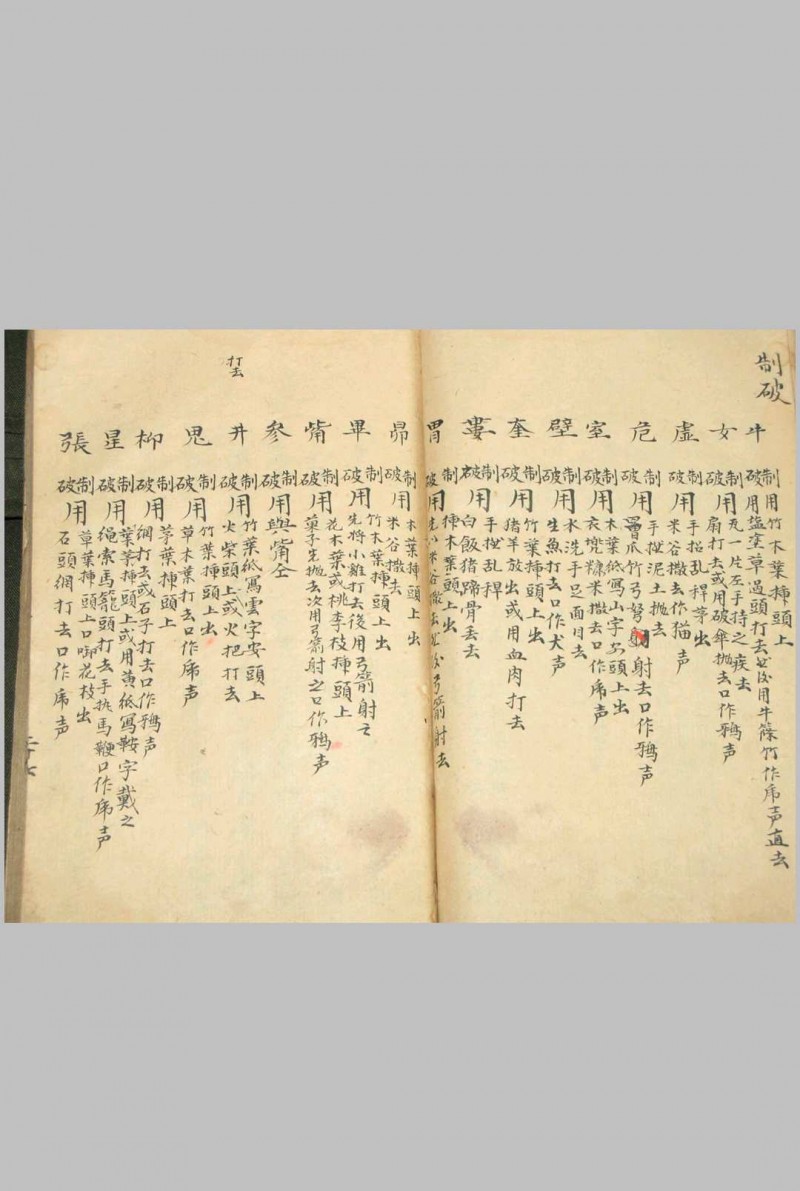 制破
牛
制用竹木葉挿頭上
破用塩塗草過頭打去用牛條竹作虎声直去
女
制用瓦一片左手持之疾去
破用扇打去或用破傘抛去口作鴉声
虛
制用手搓乱稈茅出
破用米谷撒去作猫声
危
制用手揑泥土抛去
破用竹弓弩射去口作鴉声
室
制用木葉紙寫山字安頭上出
破用衣兜糠米撒去口作虎声
壁
制用水洗手足面目去
破用生魚打去口作犬声
奎
制用竹葉挿頭上出
破用猪羊放出或用血肉打去
婁
制用手揑乱稈
破用白飯猪蹄骨丢去
胃
制用挿木葉頭上出
破用先小米谷撒去弓箭射去
昴
制用木葉挿頭上出
破用米谷撒去
畢
制用竹木葉挿頭上出
破用先將小雞打去後用弓箭射之
觜
制用花木葉或桃李枝挿頭上
破用菓子先抛去次用弓箭射之口作鴉声
參
制破用與觜仝
井
制用竹葉紙寫雲字安頭上
破用火柴頭上或火把打去
打去
鬼
制用竹葉挿頭上出
破用草木葉打去口作虎声
柳
制用茅葉挿頭上
破用網打去或石子打去口作鴉声
星
制用葉挿頭上或用黄紙寫鞍字戴之
破用繩索馬籠頭打去手执馬鞭口作虎声
張
制用草葉挿頭上口啣花枝出
破用石頭綱打去口作虎声